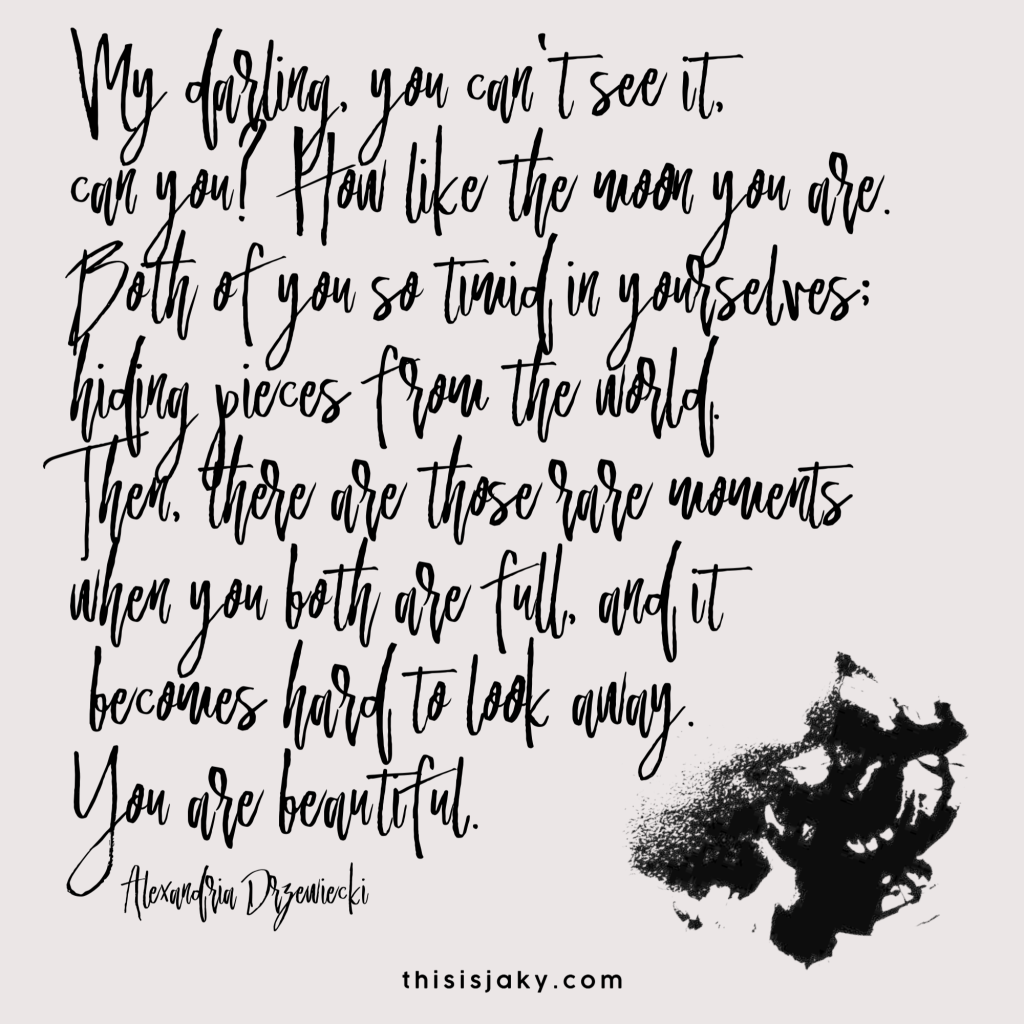 My darling, you can't see it,
can you? How like the moon you are.
Both of you so timid in yourselves;
hiding pieces from the world.
Then, there are those rare moments
when you both are full, and it
becomes hard to look away.
You are beautiful.
Alexandria Drzewiecki
thisisjaky.com